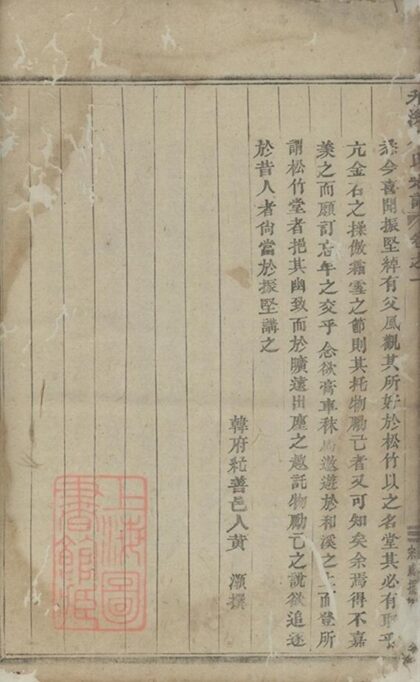 余今喜聞振堅綽有父風觀其所好於松竹以之名堂其必有取乎
亢金石之操傲霜雪之節則其托物勵己者又可知矣余焉得不嘉
羡之而願訂忘年之交乎念欲膏車秣馬遨遊於和溪之上而登所
謂松竹堂者挹其幽致而於曠遠出塵之趣託物勵己之說欲追逐
於昔人者尙當於振堅講之
韓府紀善邑人黃 灝撰
上海圖
書館藏